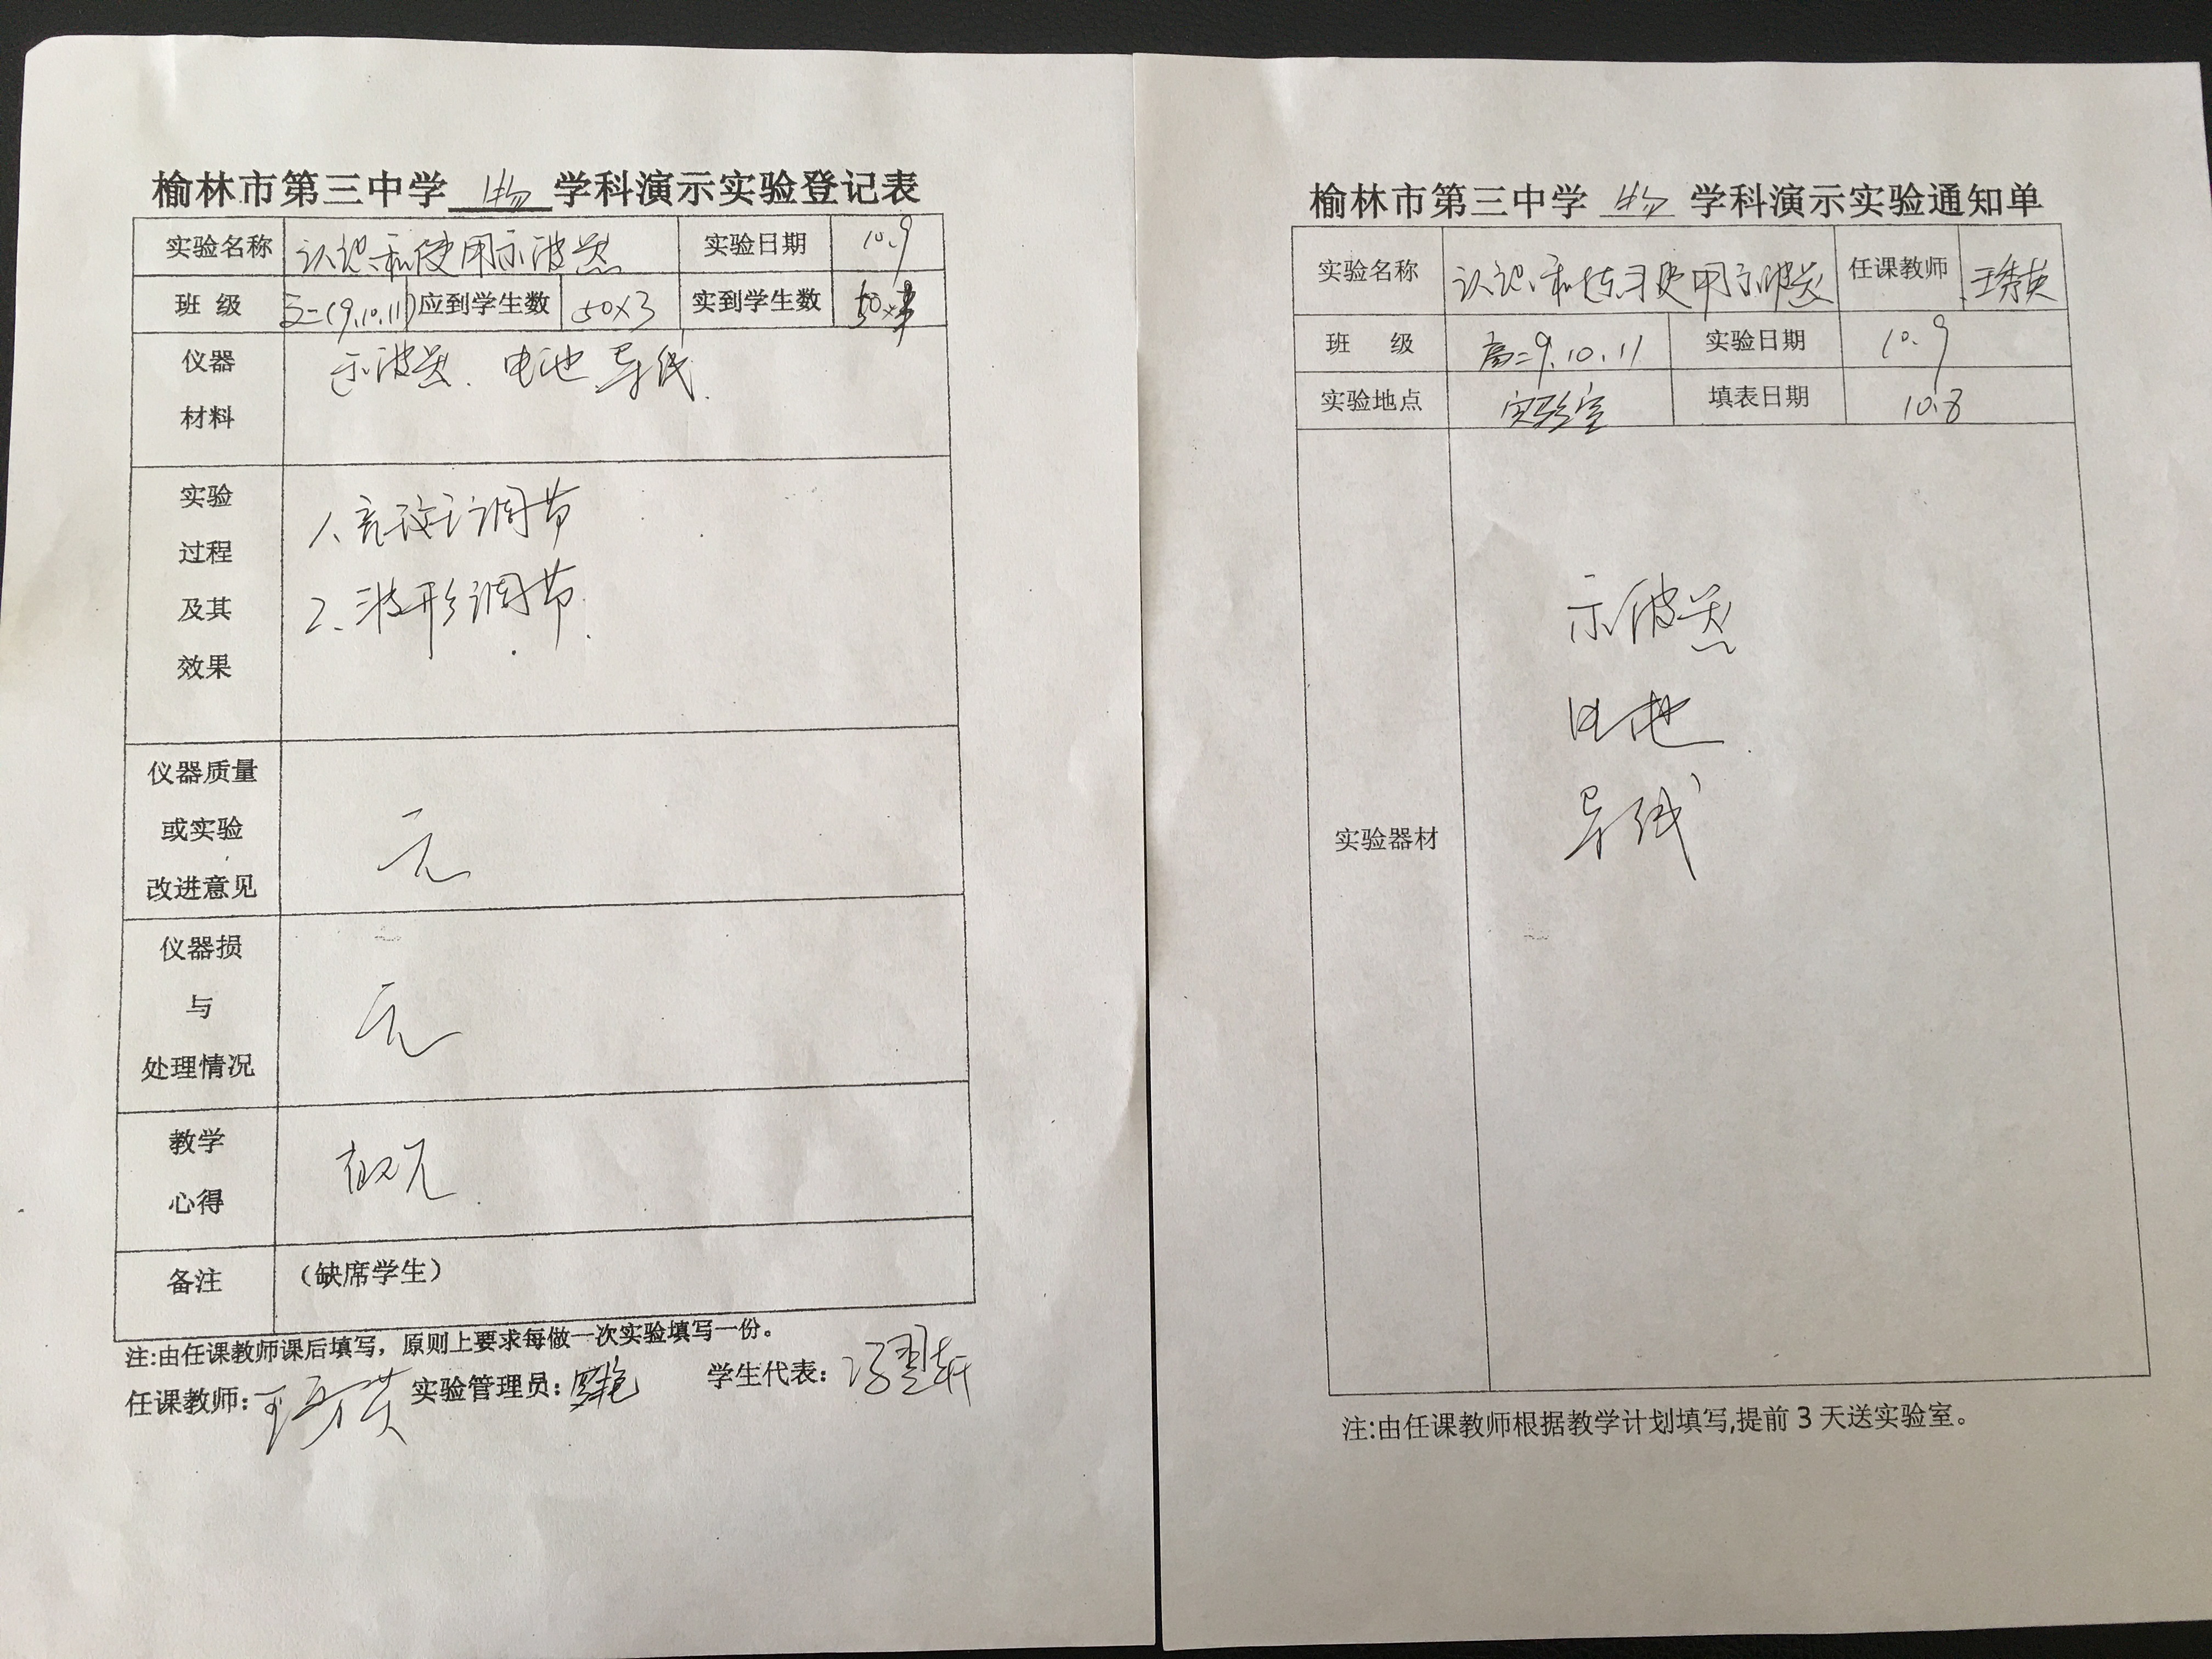 榆林市第三中学 物 学科演示实验登记表
实验名称 认识和使用示波器 实验日期 10.9
班 级 高二(9.10.11) 应到学生数 50×3 实到学生数 50×
仪器 示波器、电池 导线.
材料
实验
过程 1、亮斑调节
及其 2、波形调节.
效果
仪器质量
或实验 无
改进意见
仪器损
与 无
处理情况
教学
心得
备注 （缺席学生）
注:由任课教师课后填写，原则上要求每做一次实验填写一份。
任课教师:王秀英 实验管理员: 学生代表:冯翌轩
榆林市第三中学 物 学科演示实验通知单
实验名称 认识和练习使用示波器 任课教师 王秀英
班 级 高二9.10.11 实验日期 10.9
实验地点 实验室 填表日期 10.8
示波器
电池
导线
实验器材
注:由任课教师根据教学计划填写,提前 3 天送实验室。